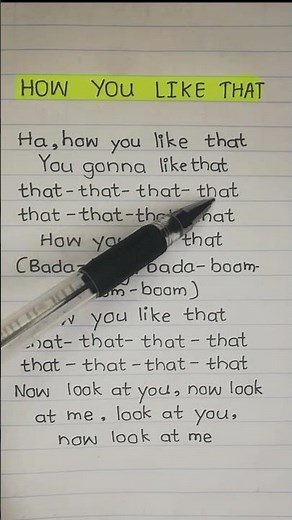 HOW YOU LIKE THAT
Ha, how you like that
You gonna like that
that - that - that - that
that - that - that
How that
(Bada- bada - boom-
- boom)
you like that
that - that - that
that - that - that - that
Now look at you, now look
at me, look at you,
now look at me